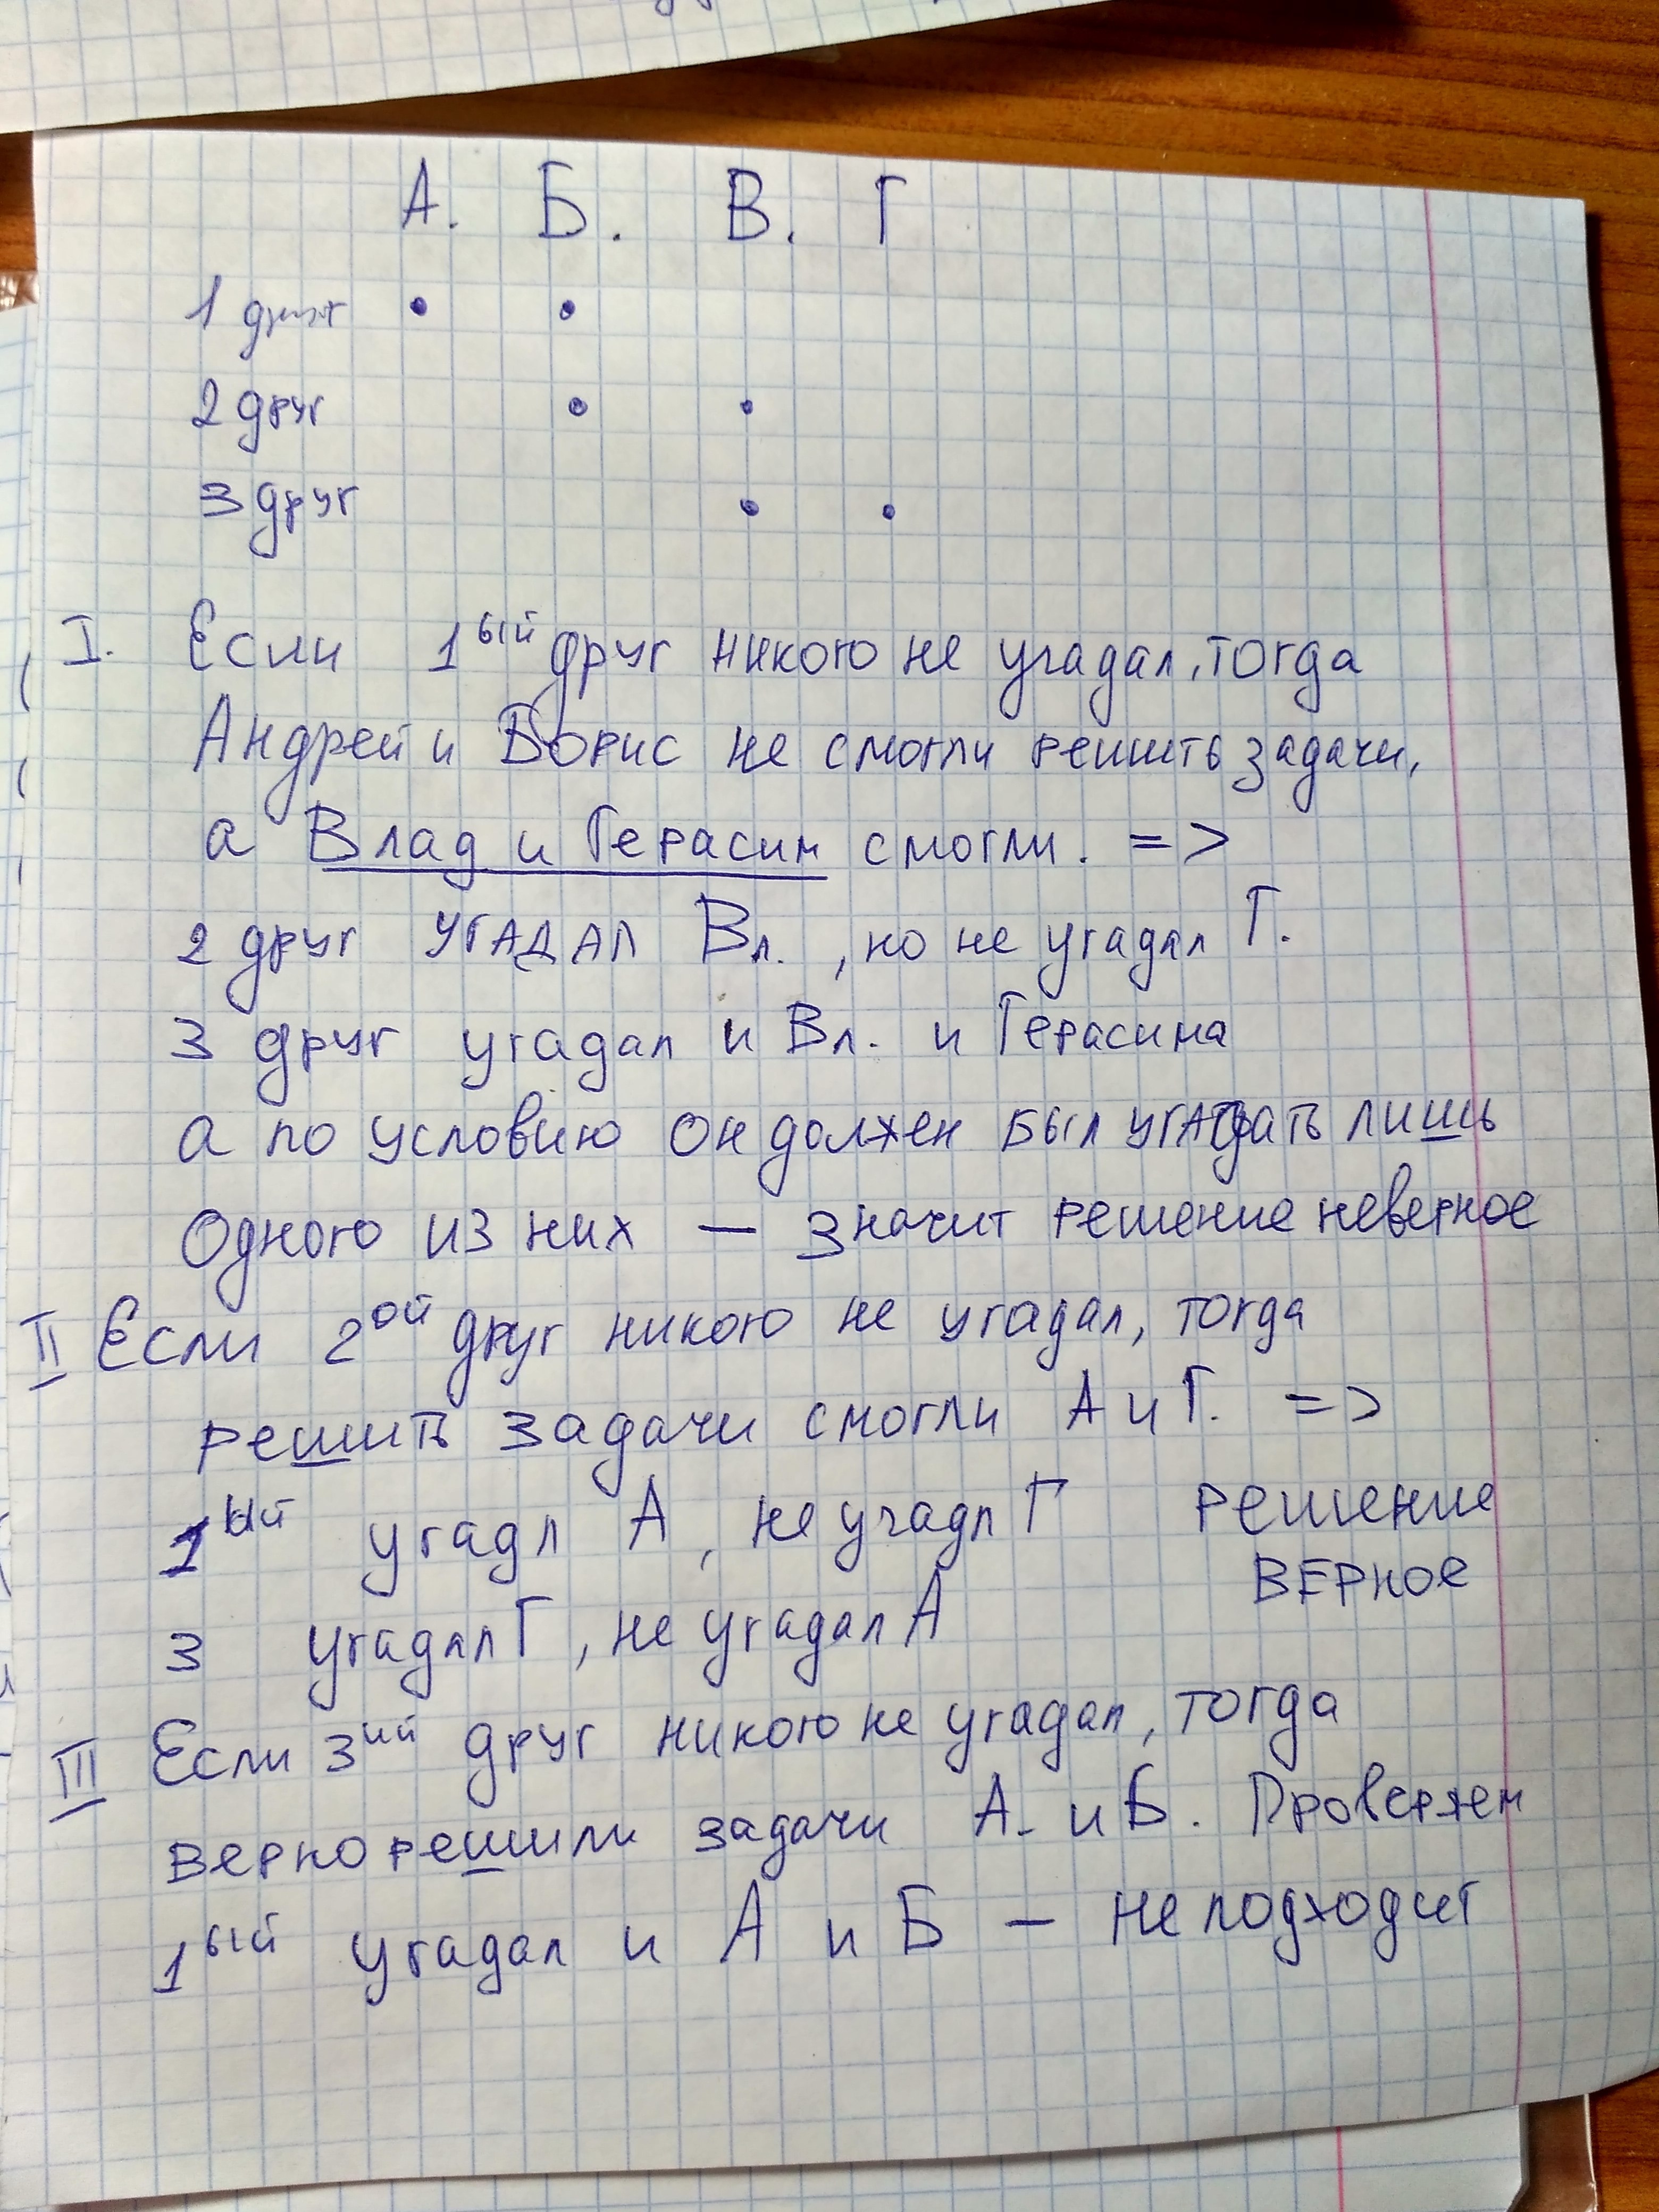 А. Б. В. Г
1 друг
2 друг
3 друг
I. Если 1ый друг никого не угадал, тогда
Андрей и Борис не смогли решить задачи,
а Влад и Герасим смогли. =>
2 друг угадал Вл., но не угадал Г.
3 друг угадал и Вл. и Герасима
а по условию он должен был угадать лишь
Одного из них — значит решение неверное
II Если 2ой друг никого не угадал, тогда
решить задачи смогли А и Г. =>
1ый угадл А, не угадл Г решение
верное
3 угадал Г, не угадал А
III Если 3ий друг никого не угадал, тогда
верно решили задачи А. и Б. Проверяем
1ый угадал и А и Б — не подходит